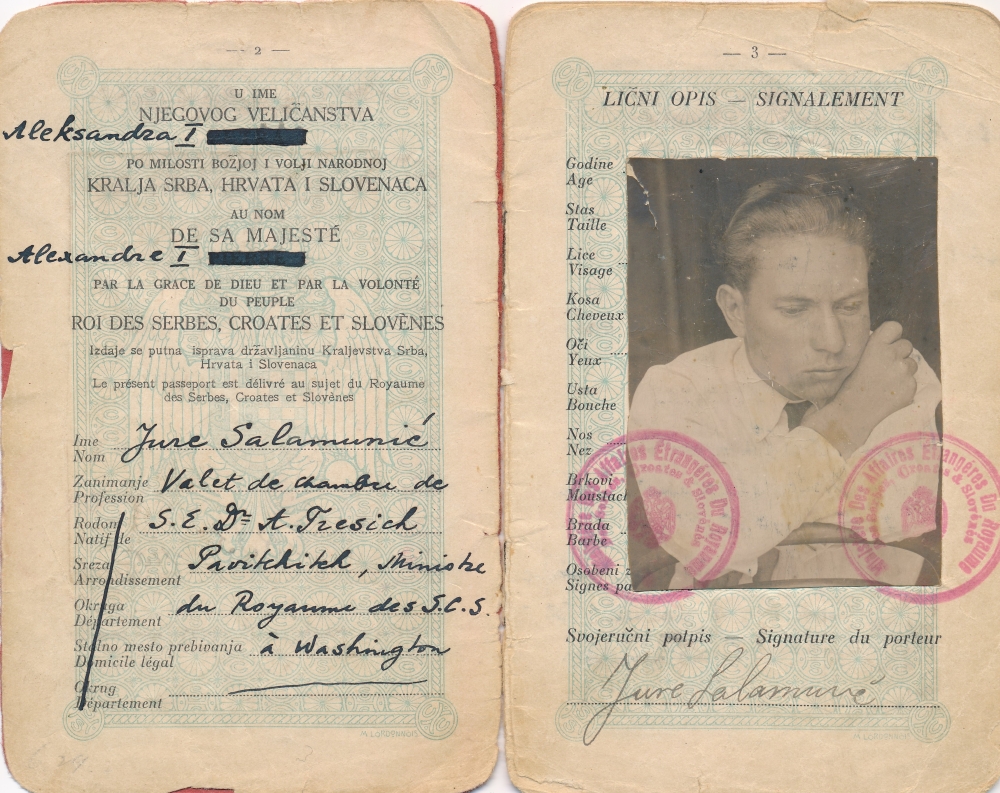 — 2 —
U IME
NJEGOVOG VELIČANSTVA
Aleksandra I
PO MILOSTI BOŽJOJ I VOLJI NARODNOJ
KRALJA SRBA, HRVATA I SLOVENACA
AU NOM
DE SA MAJESTÉ
Alexandre I
PAR LA GRACE DE DIEU ET PAR LA VOLONTÉ
DU PEUPLE
ROI DES SERBES, CROATES ET SLOVÈNES
Izdaje se putna isprava državljaninu Kraljevstva Srba,
Hrvata i Slovenaca
Le présent passeport est délivré au sujet du Royaume
des Serbes, Croates et Slovènes
Ime Jure Salamunić
Nom
Zanimanje Valet de chambre de
Profession
Rodom S.E. Dr A. Tresich
Natif de
Sreza Pavitchitch, Ministre
Arrondissement
Okruga du Royaume des S.C.S.
Département
Stalno mesto prebivanja à Washington
Domicile légal
Okrug
Département
M. LORDONNOIS
— 3 —
LIČNI OPIS — SIGNALEMENT
Godine
Age
Stas
Taille
Lice
Visage
Kosa
Cheveux
Oči
Yeux
Usta
Bouche
Nos
Nez
Brkovi
Moustach
Brada
Barbe
Osobeni z
Signes pa
Affaires Etrangères Du Royaume
Croates & Slovènes
Des Affaires Etrangères Du Royaume
Croates & Slovènes
Svojeručni potpis — Signature du porteur
Jure Salamunić
M. LORDONNOIS